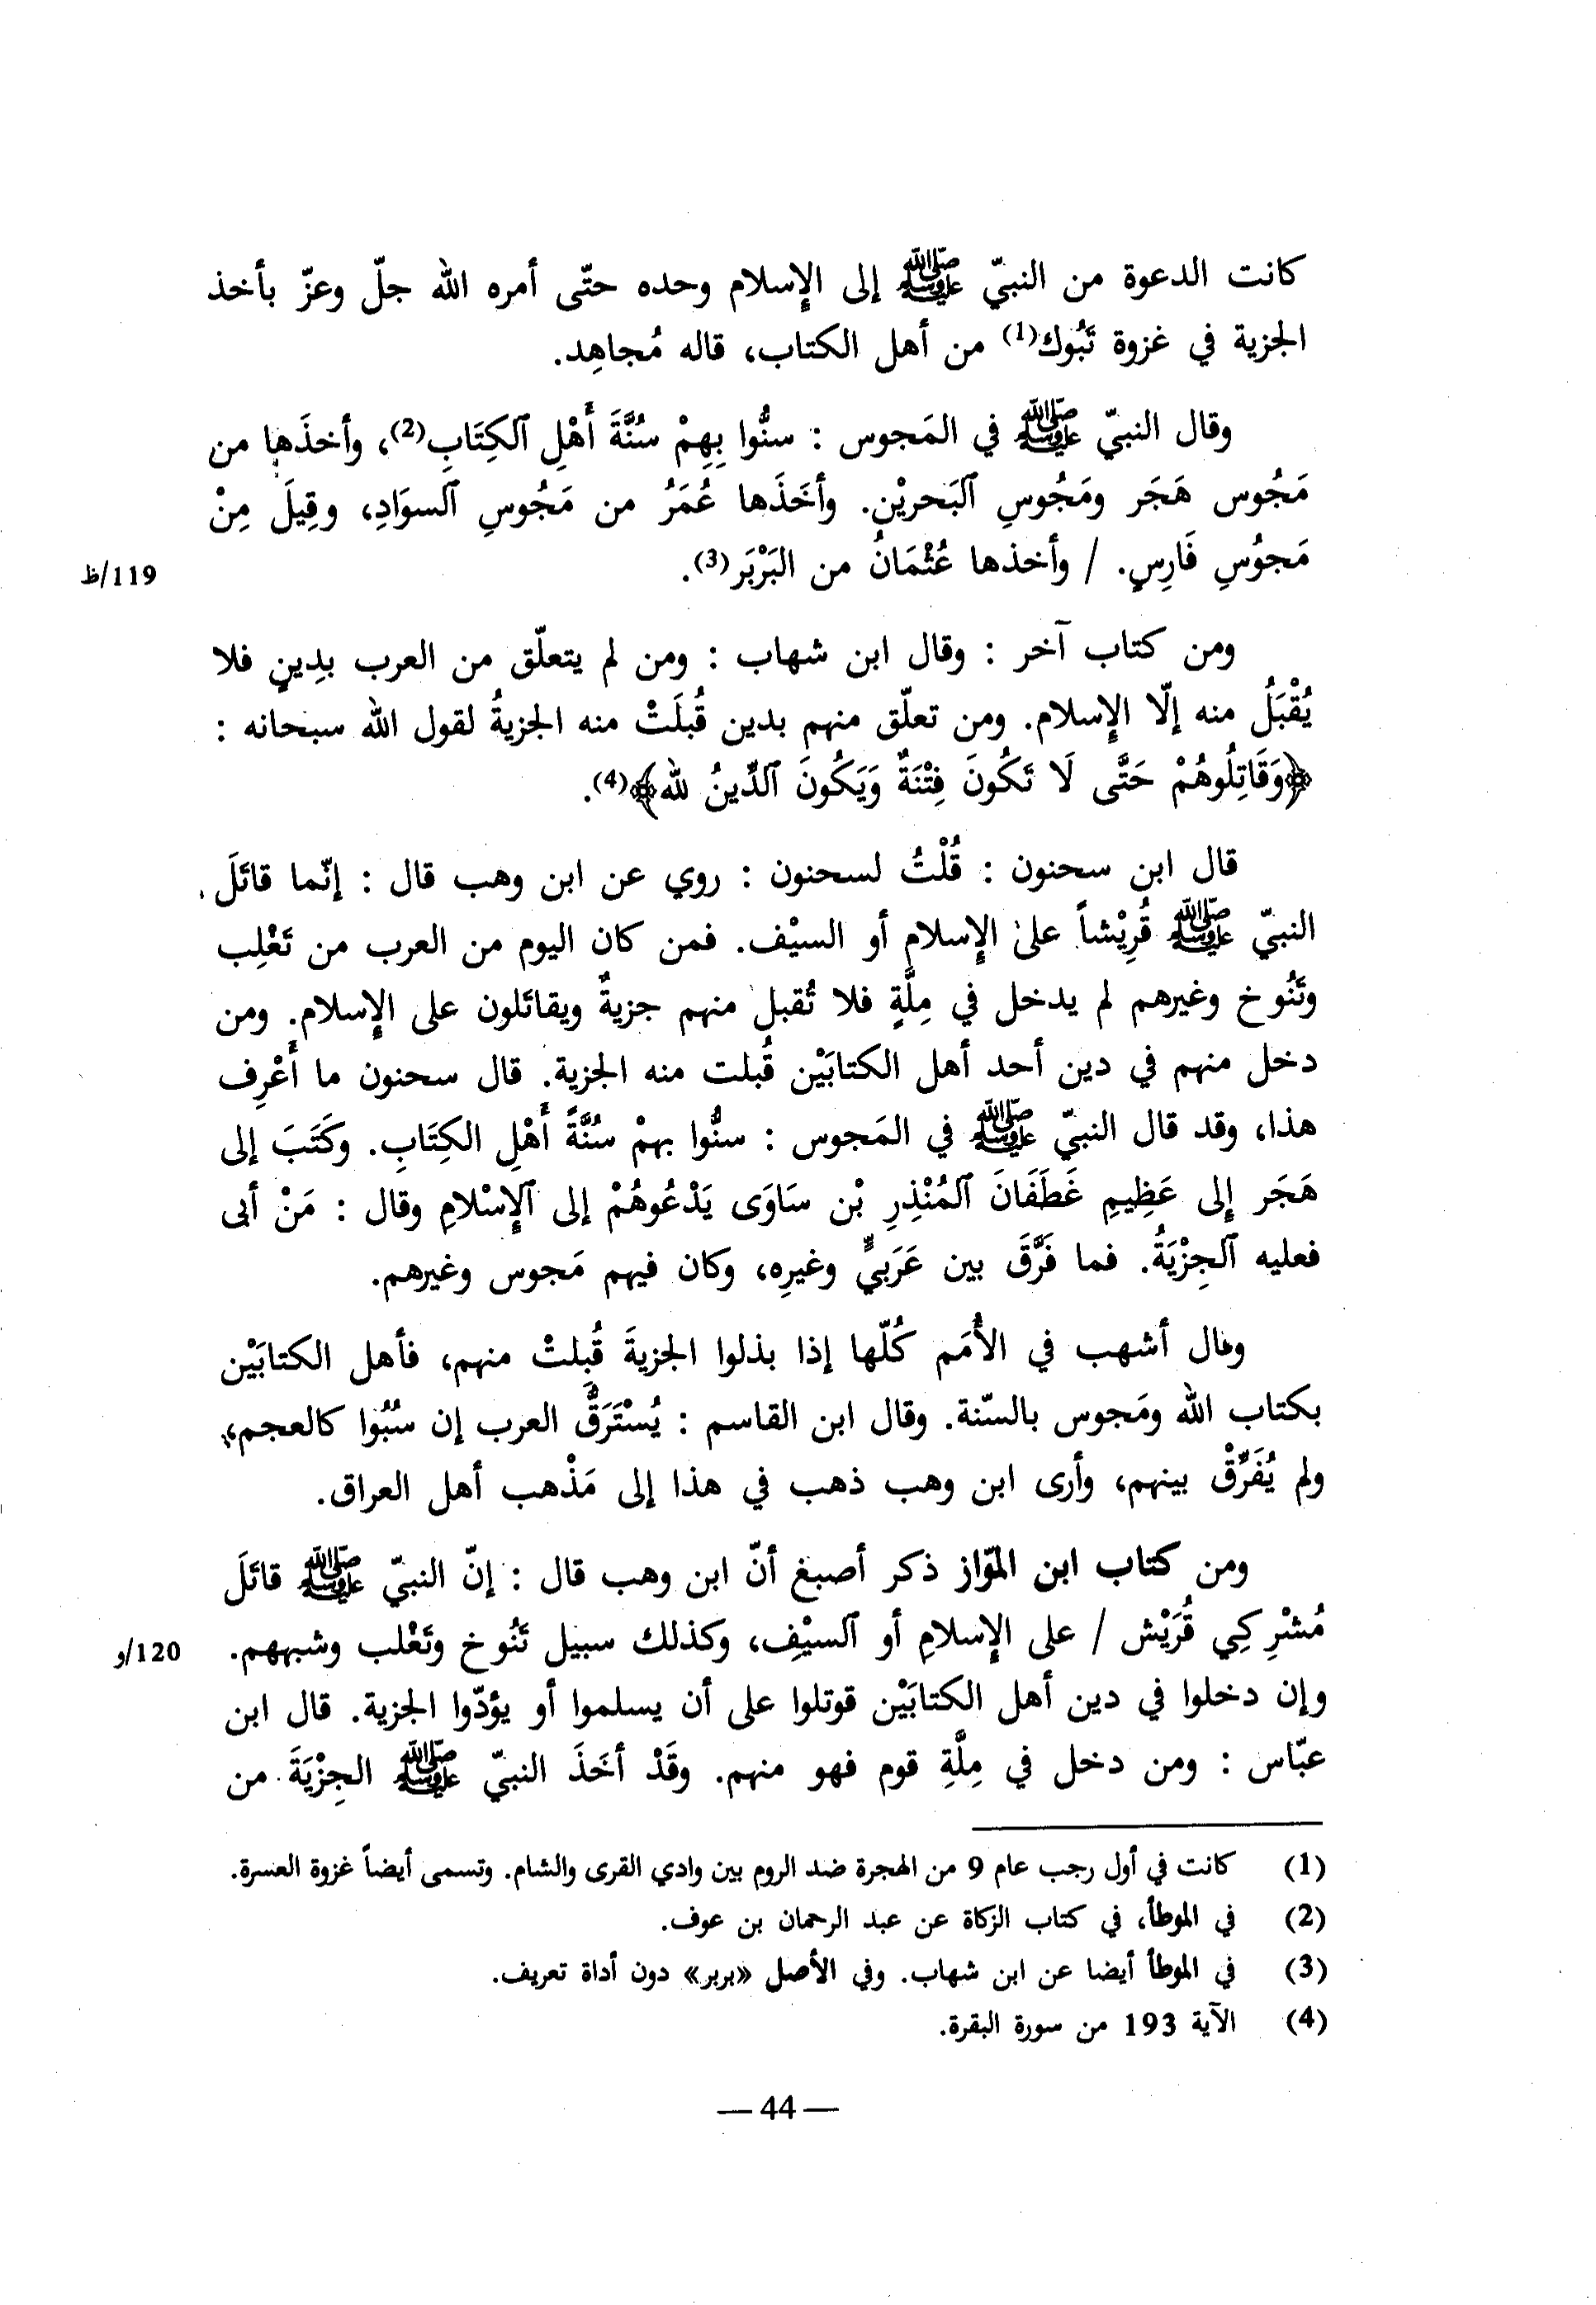 كانت الدعوة من النبيّ ﷺ إلى الإسلام وحده حتّى أمره الله جلّ وعزّ بأخذ
الجزية في غزوة تَبُوك(1) من أهل الكتاب، قاله مُجاهِد.
وقال النبيّ ﷺ في المَجوس : سنُّوا بِهِمْ سُنَّةَ أَهْلِ ٱلكِتَابِ(2)، وأخذَها من
مَجُوس هَجَر ومَجُوسِ ٱلبَحريْنِ. وأخَذَها عُمَرُ من مَجُوسِ ٱلسوَادِ، وقِيلَ مِنْ
مَجوُسِ فَارِسٍ. / وأخذها عُثْمَانُ من البَرْبَر(3).
119/ظ
ومن كتاب آخر : وقال ابن شهاب : ومن لم يتعلّق من العرب بدِينٍ فلا
يُقْبَلُ منه إلّا الإسلام. ومن تعلّق منهم بدين قُبلَتْ منه الجزيةُ لقول الله سبحانه :
﴿وَقَاتِلُوهُمْ حَتَّى لَا تَكُونَ فِتْنَةٌ وَيَكُونَ ٱلدِّينُ لله﴾(4).
قال ابن سحنون : قُلْتُ لسحنون : روي عن ابن وهب قال : إنّما قاتَلَ
النبيّ ﷺ قُرِيْشاً على الإسلامِ أو السيْف. فمن كان اليوم من العرب من تَغْلِب
وتَنُوخ وغيرهم لم يدخل في مِلَّةٍ فلا تُقبل منهم جزيةٌ ويقاتَلون على الإسلام. ومن
دخل منهم في دين أحد أهل الكتابَيْن قُبلت منه الجزية. قال سحنون ما أَعْرِف
هذا، وقد قال النبيّ ﷺ في المَجوس : سنُّوا بهمْ سُنَّةَ أَهْلِ الكِتَابِ. وكَتَبَ إلى
هَجَر إِلى عَظِيمِ غَطَفَانَ ٱلمُنْذِرِ بْن سَاوَى يَدْعُوهُمْ إلى ٱلإسْلامِ وقال : مَنْ أبى
فعليه ٱلجِزْيَةُ. فما فَرَّقَ بين عَرَبيٍّ وغيرِه، وكان فيهم مَجوس وغيرهم.
وقال أشهب في الأُمَم كُلّها إذا بذلوا الجزيةَ قُبِلتْ منهم، فأهل الكتابَيْن
بكتاب الله ومَجوس بالسّنة. وقال ابن القاسم : يُسْتَرَقُّ العرب إن سُبُوا كالعجم،
ولم يُفَرِّقْ بينهم، وأرى ابن وهب ذهب في هذا إلى مَذْهب أهل العراق.
ومن كتاب ابن المّواز ذكر أصبغ أنّ ابن وهب قال : إنّ النبيّ ﷺ قاتَلَ
مُشْرِكِي قُرَيْش / على الإسلامِ أو ٱلسيْفِ، وكذلك سبيل تَنُوخ وتَغْلب وشبههم.
120/و
وإن دخلوا في دين أهل الكتابَيْن قوتلوا على أن يسلموا أو يؤدّوا الجزية. قال ابن
عبّاس : ومن دخل في مِلَّةِ قوم فهو منهم. وقَدْ أخَذَ النبيّ ﷺ الجِزْيَةَ من
(1) كانت في أول رجب عام 9 من الهجرة ضد الروم بين وادي القرى والشام. وتسمى أيضاً غزوة العسرة.
(2) في الموطأ، في كتاب الزكاة عن عبد الرحمان بن عوف.
(3) في الموطأ أيضا عن ابن شهاب. وفي الأصل «بربر» دون أداة تعريف.
(4) الآية 193 من سورة البقرة.
— 44 —